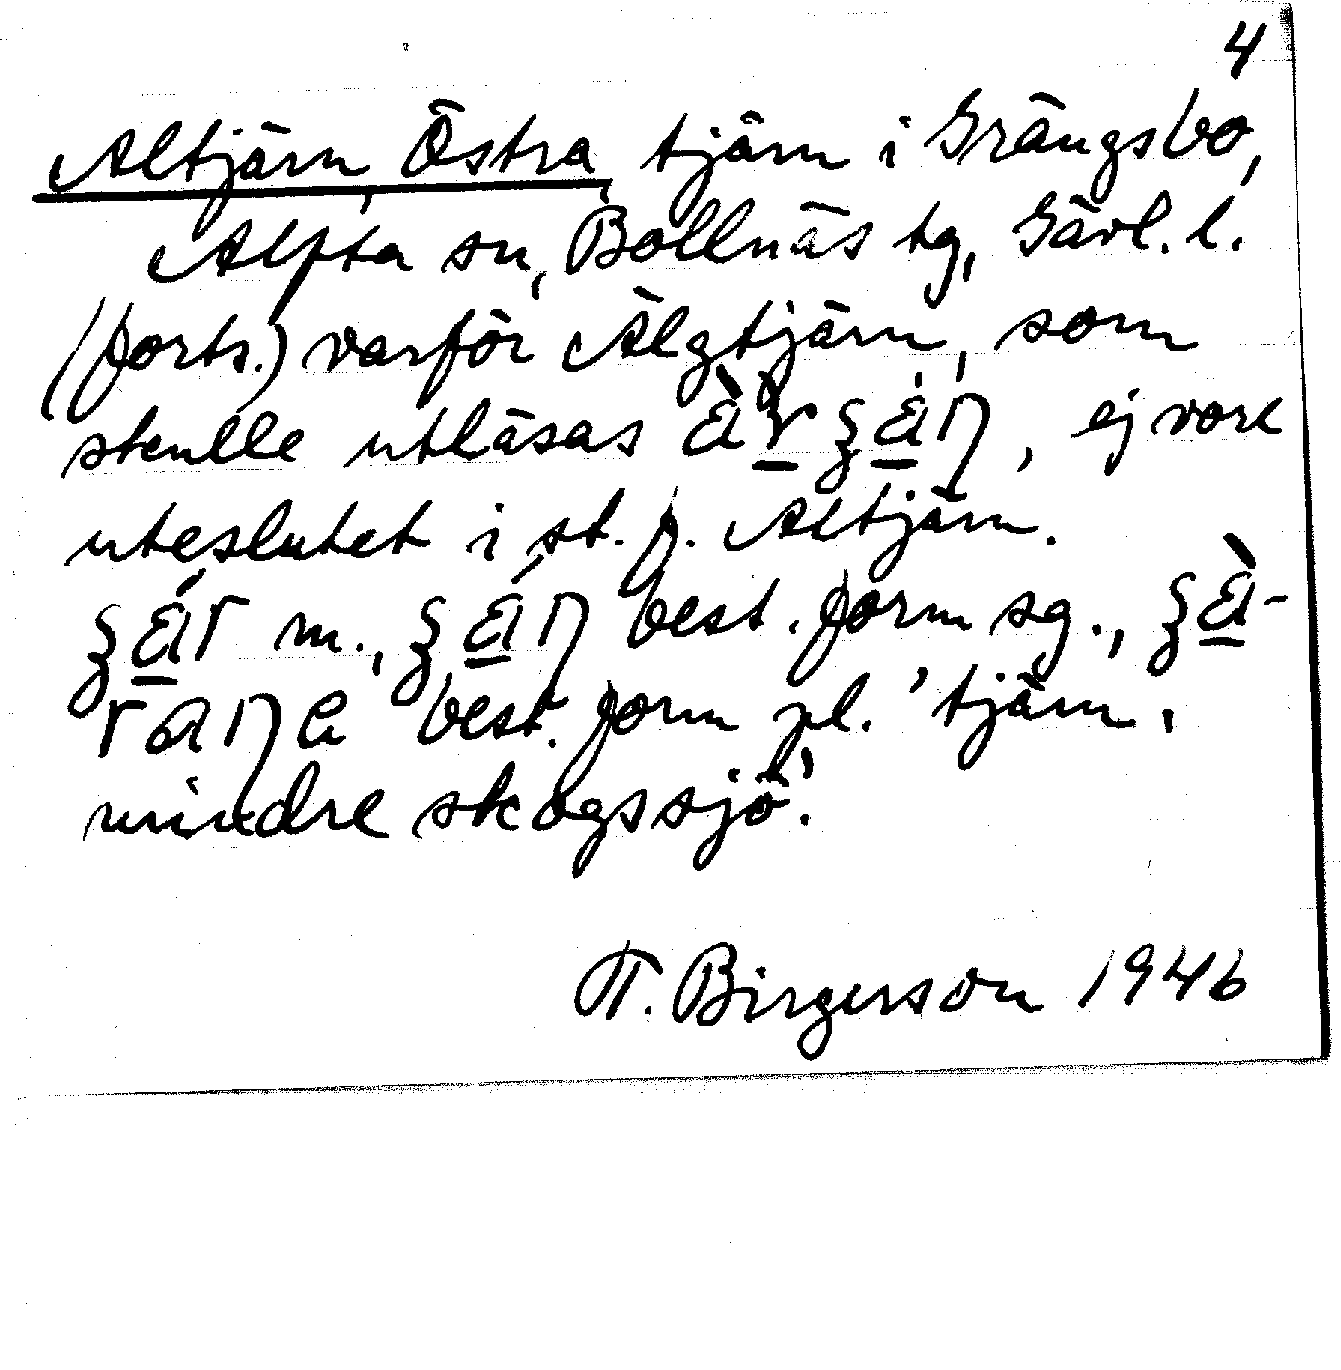 4
Altjärn, Östra, tjärn i Grängsbo,
Alfta sn, Bollnäs tg, Gävl. l.
(forts.) varför Älgtjärn, som
skulle utläsas , ej vore
uteslutet i st. f. Altjärn.
m., best. form sg.,
best. form pl. 'tjärn,
mindre skogssjö'.
T. Birgerson 1946